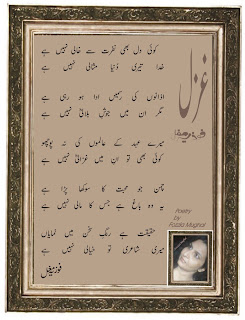 غزل
کوئی دل بھی نفرت سے خالی نہیں ہے
خدا تیری دُنیا مثالی نہیں ہے
اذانوں کی رسمیں ادا ہو رہی ہے
مگر ان میں جوشِ بلالیؓ نہیں ہے
میرے عہد کے عالموں کی نہ پوچھو
کوئی بھی تو ان میں غزالیؒ نہیں ہے
چمن جو محبت کا سوکھا پڑا ہے
یہ وہ باغ ہے جس کا مالی نہیں ہے
حقیقت ہے رنگِ سخن میں نمایاں
میری شاعری تو خیالی نہیں ہے
فوزیہ مغل
Poetry
by
Fozia Mughal